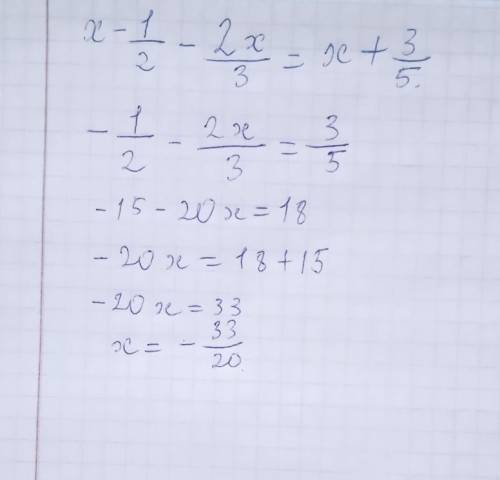 x - 1/2 - 2x/3 = x + 3/5.
- 1/2 - 2x/3 = 3/5
-15 - 20x = 18
-20x = 18 + 15
-20x = 33
x = - 33/20.